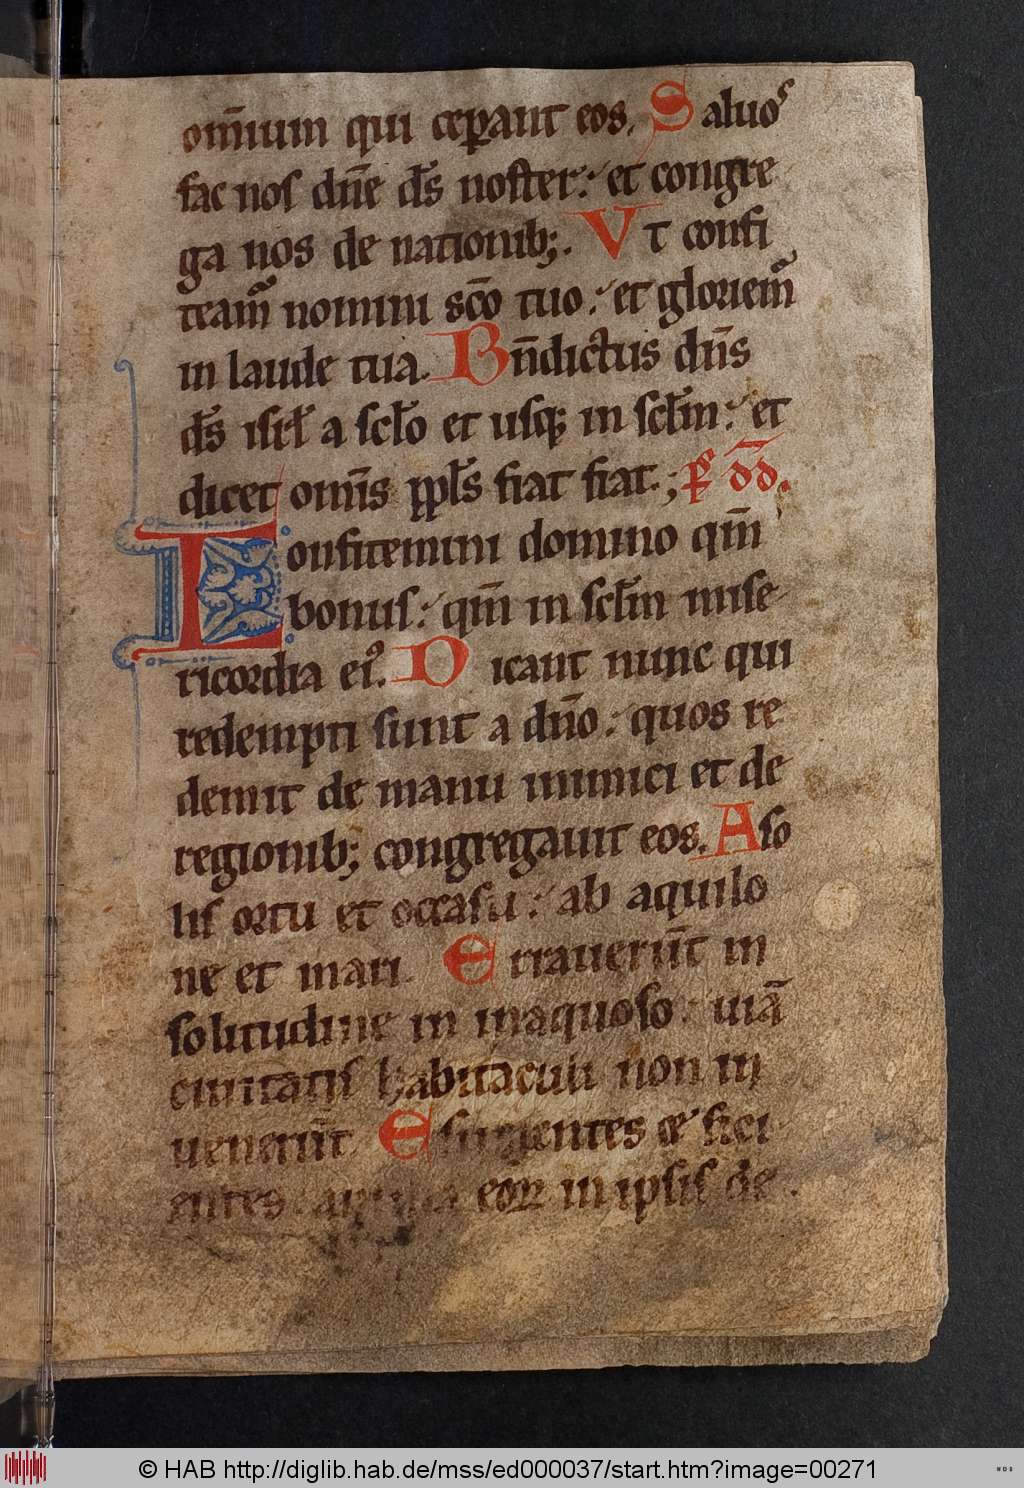 om̄ium qui ceꝑant eos. Saluoſ
fac noſ dn̄e ds̄ noſter: et congre
ga nos de nationib;. Vt confi
team̄ nomini sc̄o tuo: et gloriem̄
in laude tua. Bn̄dictus dn̄s
ds̄ iſrł a ſcło et uſq; in ſcłm: et
dicet om̄s ppłs fiat fiat.; pſ dd̄.
Confitemini domino qm̄
bonuſ: qm̄ in ſcłm miſe
ricordia ei᾽. Dicant nunc qui
redempti ſunt a dn̄o: quos re
demit de manu inimici et de
regionib; congregauit eos. A ſo
liſ ortu et occaſu: ab aquilo
ne et mari. Errauerūt in
ſolitudine in inaquoſo: uiā
ciuitatiſ habitaculi non in
uenerūt. Eſurientes et ſici
entes: anima eoꝝ in ipſiſ de
© HAB http://diglib.hab.de/mss/ed000037/start.htm?image=00271